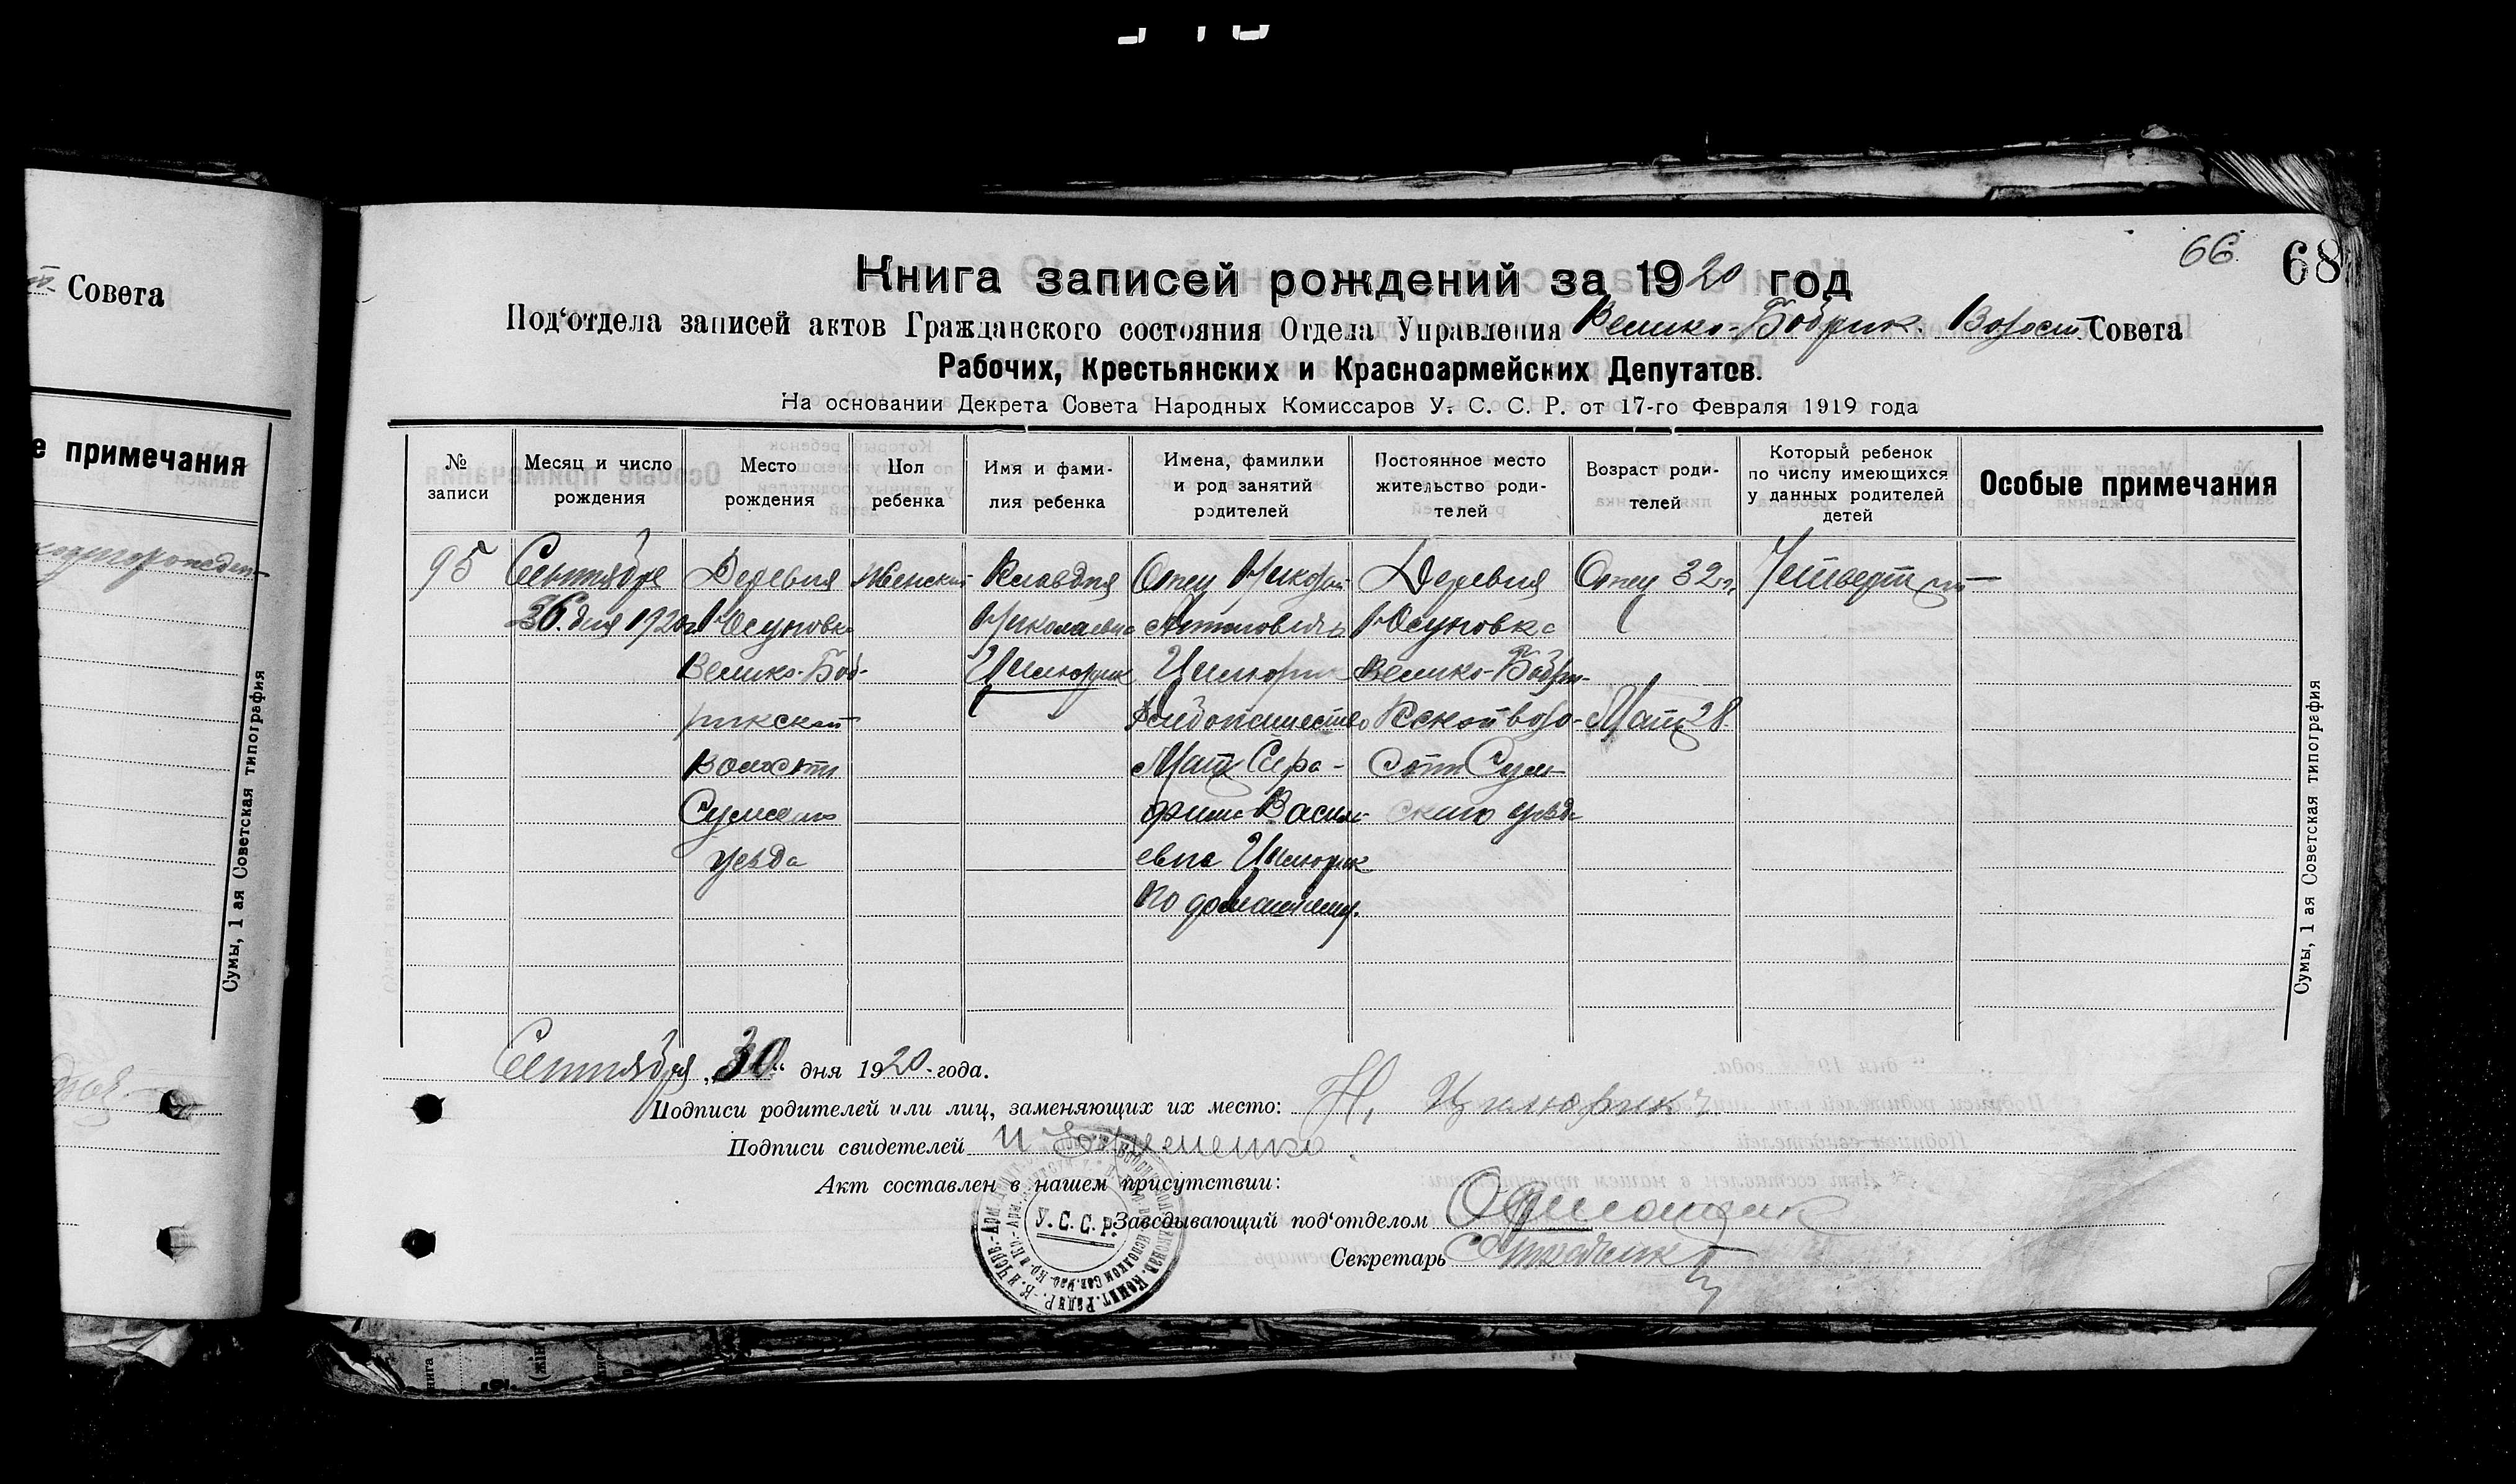 Совета
е примечания
Сумы, 1 ая Советская типография
66.
68
Книга записей рождений за 1920 год
Под‘отдела записей актов Гражданского состояния Отдела Управления Велико-Бобрик. Волост. Совета
Рабочих, Крестьянских и Красноармейских Депутатов.
На основании Декрета Совета Народных Комиссаров У. С. С. Р. от 17-го Февраля 1919 года
№ записи
Месяц и число рождения
Место рождения
Пол ребенка
Имя и фами-
лия ребенка
Имена, фамилки
и род занятий
родителей
Постоянное место
жительство роди-
телей
Возраст роди-
телей
Который ребенок
по числу имеющихся
у данных родителей
детей
Особые примечания
95
Сентября
26 дня 1920 г.
Деревня
Юсуповка
Велико-Боб-
рикской
Волости
Сумского
уезда
Женский
Клавдия
Николаевна
Цилюрик
Отец Николай
Антонович
Цилюрик
Хлебопашество
Мать Сера-
фима Василь-
евна Цилюрик
По домашнему.
Деревня
Юсуповка
Велико-Бобри-
кской воло-
сти Сум-
ского уезда
Отец 32 г.
Мать 28
Четвертый
Сентября „30“ дня 1920 года.
Подписи родителей или лиц, заменяющих их место: Н. Цилюрик
Подписи свидетелей И Ефременко.
Акт составлен в нашем присутствии:
У. С. С. Р.
Заведывающий под‘отделом
Секретарь
Сумы, 1 ая Советская типография